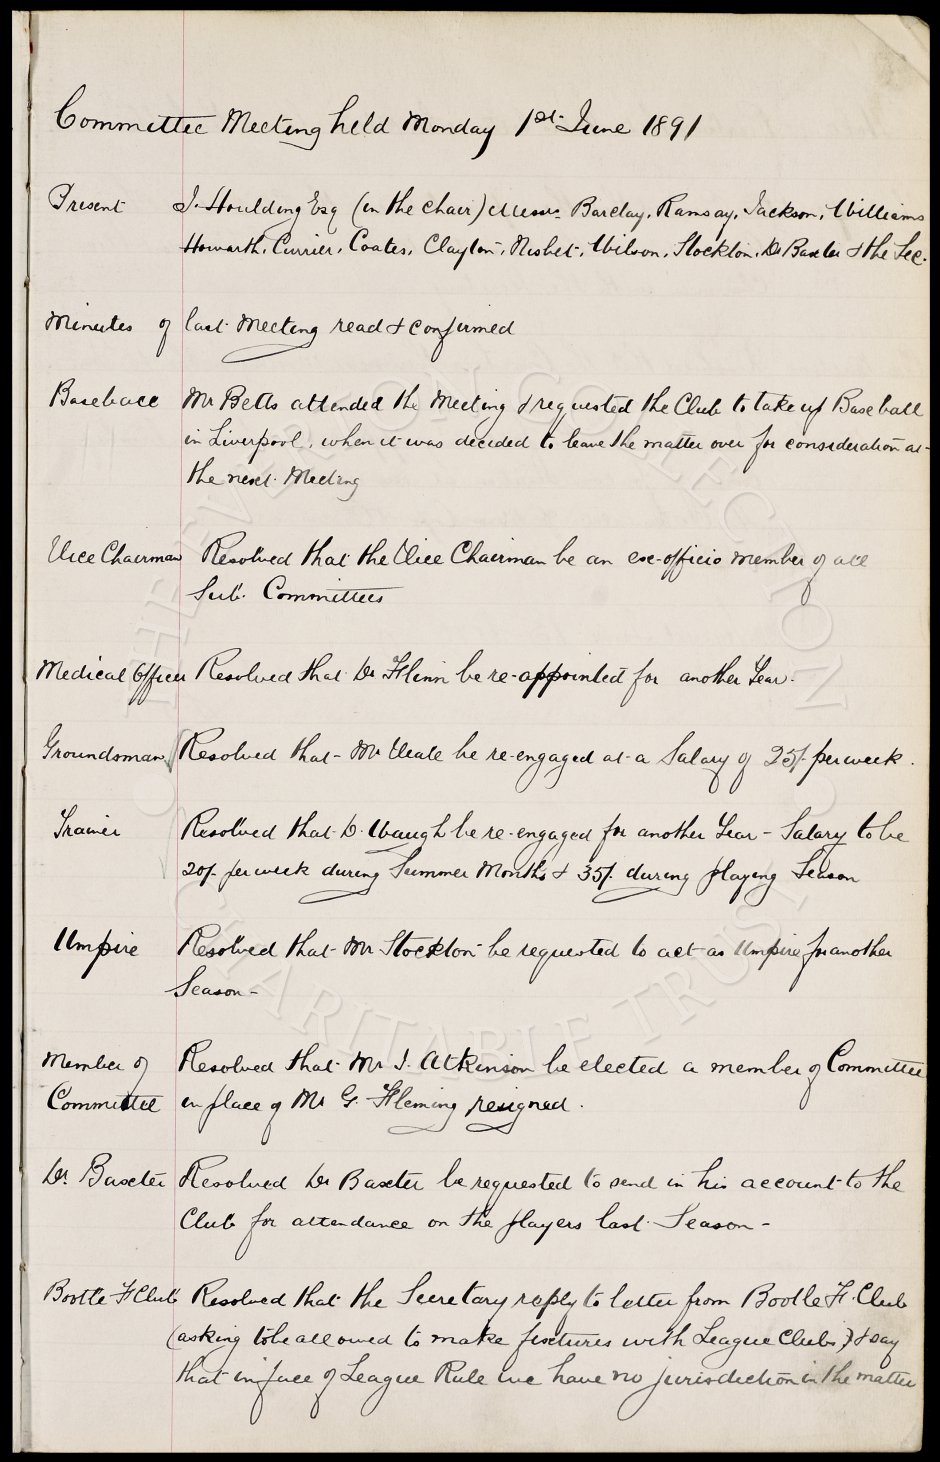 Committee Meeting held Monday 1st June 1891
Present J. Houlding Esq (in the chair) Messrs. Barclay, Ramsay, Jackson, Williams
Howarth, Currier, Coates, Clayton, Nisbet, Wilson, Stockton, Dr Baxter & the Sec.
Minutes of last Meeting read & confirmed
Baseball Mr Betts attended the Meeting & requested the Club to take up Baseball
in Liverpool, when it was decided to leave the matter over for consideration at
the next Meeting
Vice Chairman Resolved that the Vice Chairman be an ex-officio member of all
Sub. Committees
Medical Officer Resolved that Dr Flinn be re-appointed for another Year.
Groundsman Resolved that Mr Veale be re-engaged at a Salary of 25/- per week.
Trainer Resolved that D. Waugh be re-engaged for another Year - Salary to be
20/- per week during Summer Months & 35/- during playing Season
Umpire Resolved that Mr Stockton be requested to act as Umpire for another
Season -
Member of Resolved that Mr J. Atkinson be elected a member of Committee
Committee in place of Mr G. Fleming resigned.
Dr. Baxter Resolved Dr Baxter be requested to send in his account to the
Club for attendance on the players last Season -
Bootle F Club Resolved that the Secretary reply to letter from Bootle F. Club
(asking to be allowed to make fixtures with League Clubs) & say
that in face of League Rule we have no jurisdiction in the matter
EVERTON COLLECTION
CHARITABLE TRUST